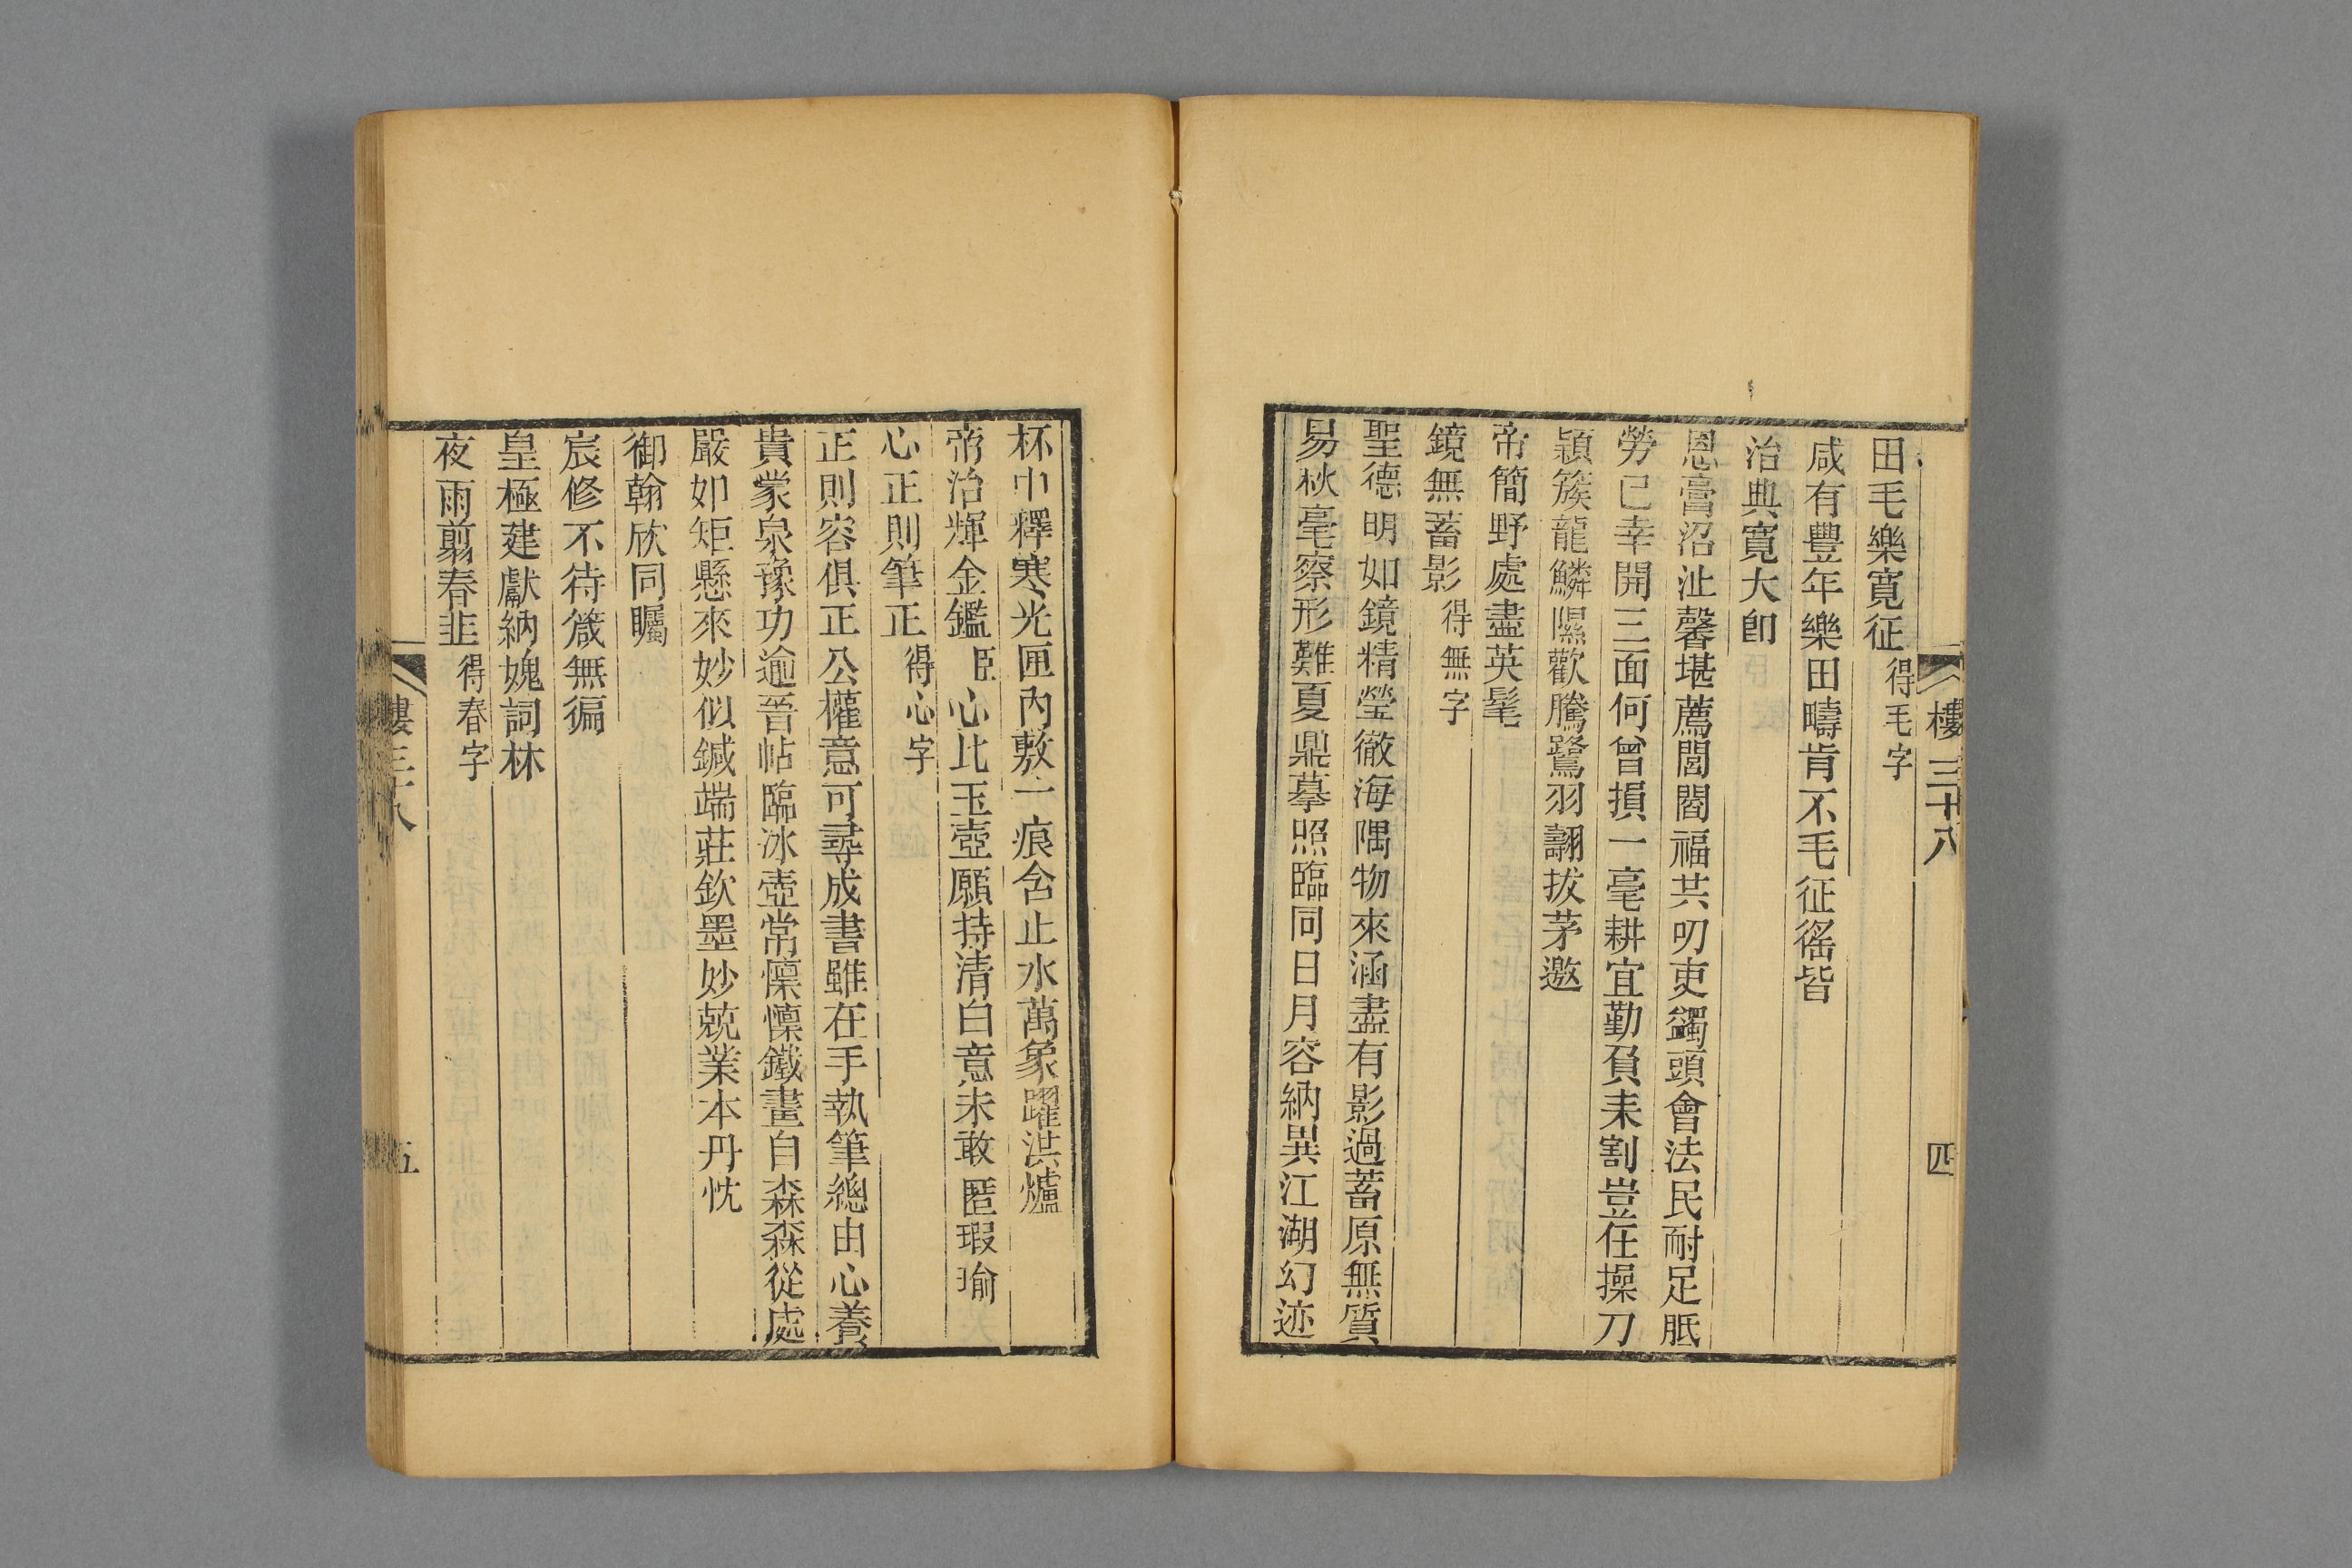 樓 三十八
四
田毛樂寬征 得毛字
咸有豐年樂田疇肯不毛征徭皆
治典寬大卽
恩膏沼沚馨堪薦閭閻福共叨吏蠲頭會法民耐足胝
勞已幸開三面何曾損一毫耕宜勤負耒割豈在操刀
穎簇龍鱗隰歡騰鷺羽翿拔茅邀
帝簡野處盡英髦
鏡無蓄影 得無字
聖德明如鏡精瑩徹海隅物來涵盡有影過蓄原無質
易秋毫察形難夏鼎摹照臨同日月容納異江湖幻迹
杯中釋寒光匣內敷一痕含止水萬象躍洪爐
帝治輝金鑑臣心比玉壺願持清白意未敢匿瑕瑜
心正則筆正 得心字
正則容俱正公權意可尋成書雖在手執筆總由心養
貴蒙泉豫功逾晉帖臨冰壺常懍懍鐵畫自森森從處
嚴如矩懸來妙似鍼端莊欽墨妙兢業本丹忱
御翰欣同矚
宸修不待箴無徧
皇極建獻納媿詞林
夜雨翦春韭 得春字
樓三十八
五